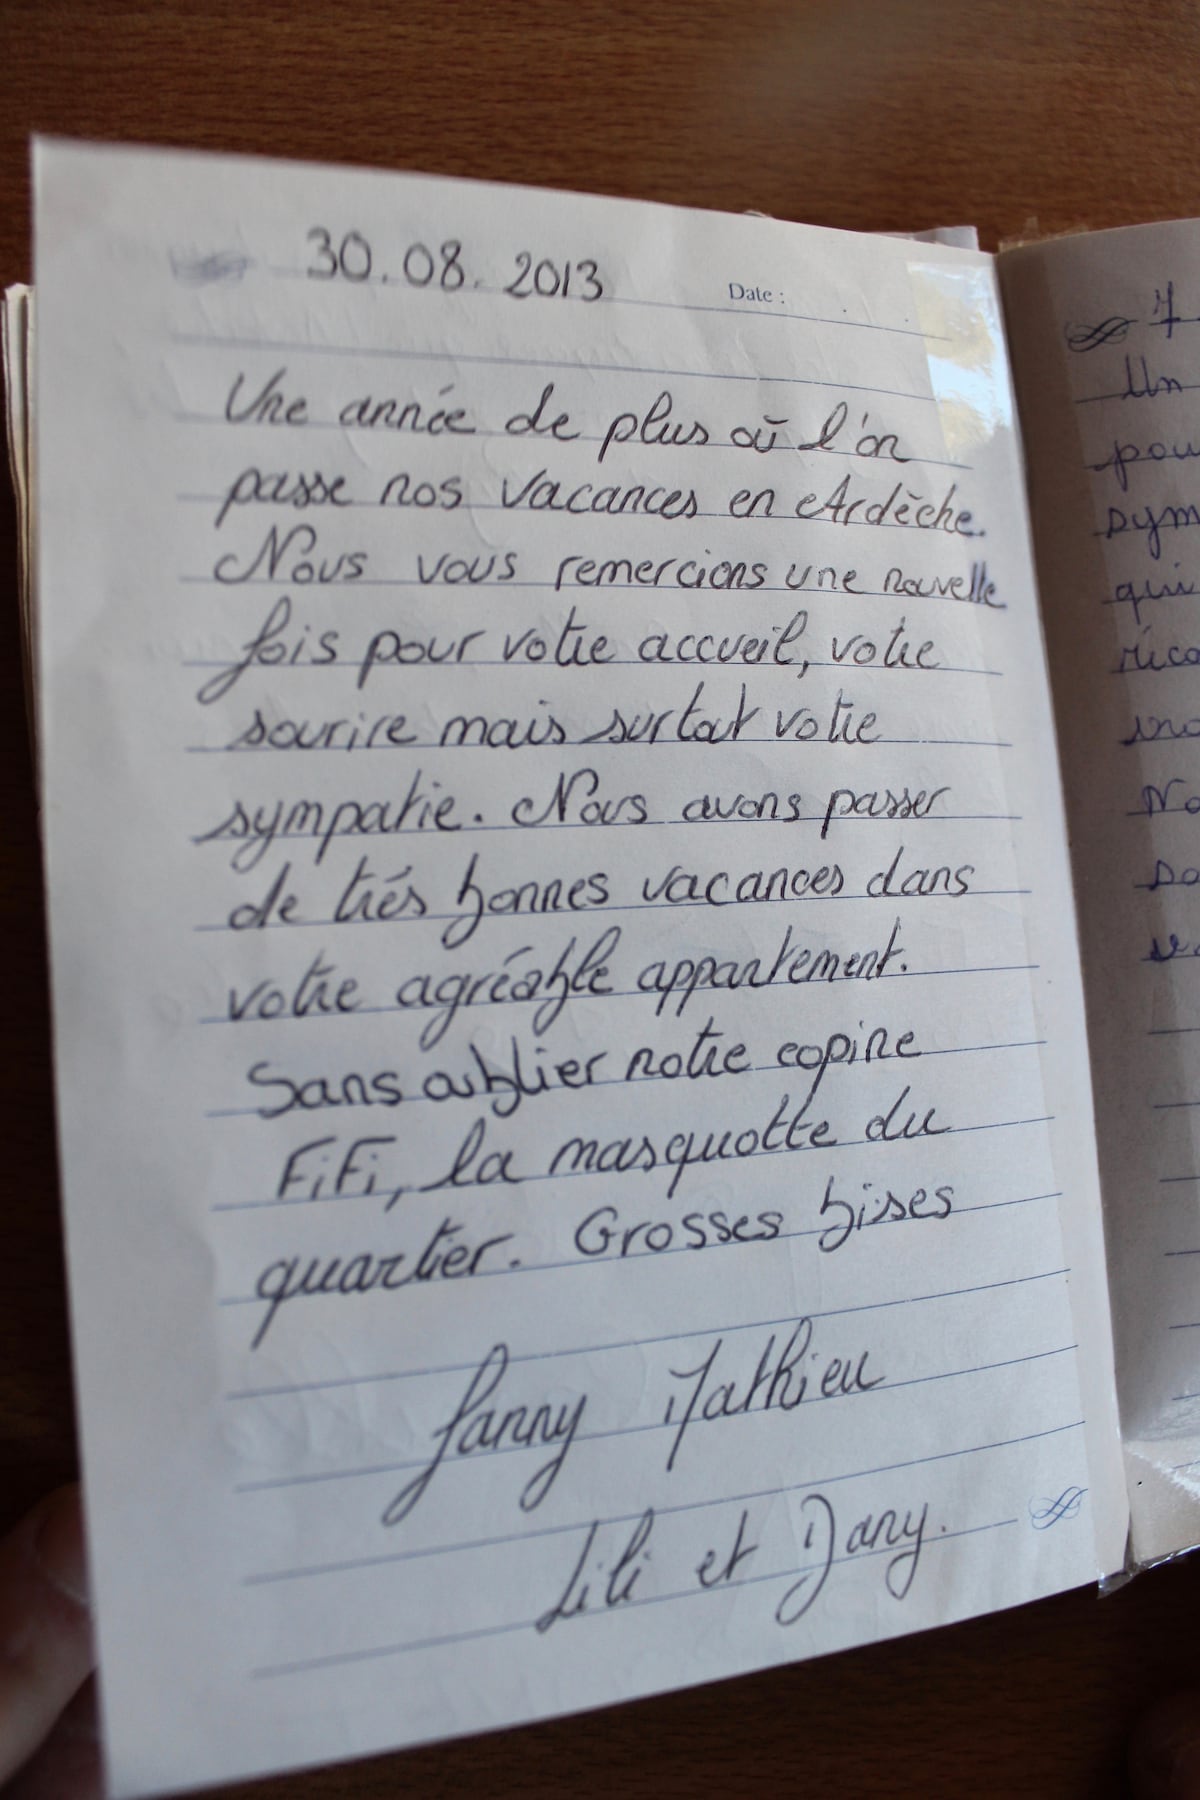 30.08.2013
Date :
Une année de plus où l'on
passe nos vacances en Ardèche.
Nous vous remercions une nouvelle
fois pour votre accueil, votre
sourire mais surtout votre
sympatie. Nous avons passer
de trés bonnes vacances dans
votre agréable appartement.
Sans oublier notre copine
FiFi, la masquotte du
quartier. Grosses bises
Fanny Mathieu
Lili et Dany.
7
Un
pou
sym
qui
No